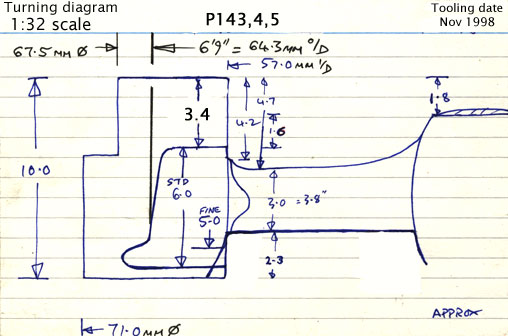 Turning diagram
1:32 scale
P143,4,5
Tooling date
Nov 1998
67.5 MM Ø
6'9" = 64.3 MM O/D
57.0 MM I/D
3.4
4.2
4.7
1.6
1.8
10.0
STD
6.0
FINE
5.0
3.0 = 3.8"
2.3
APPROX
71.0 MM Ø